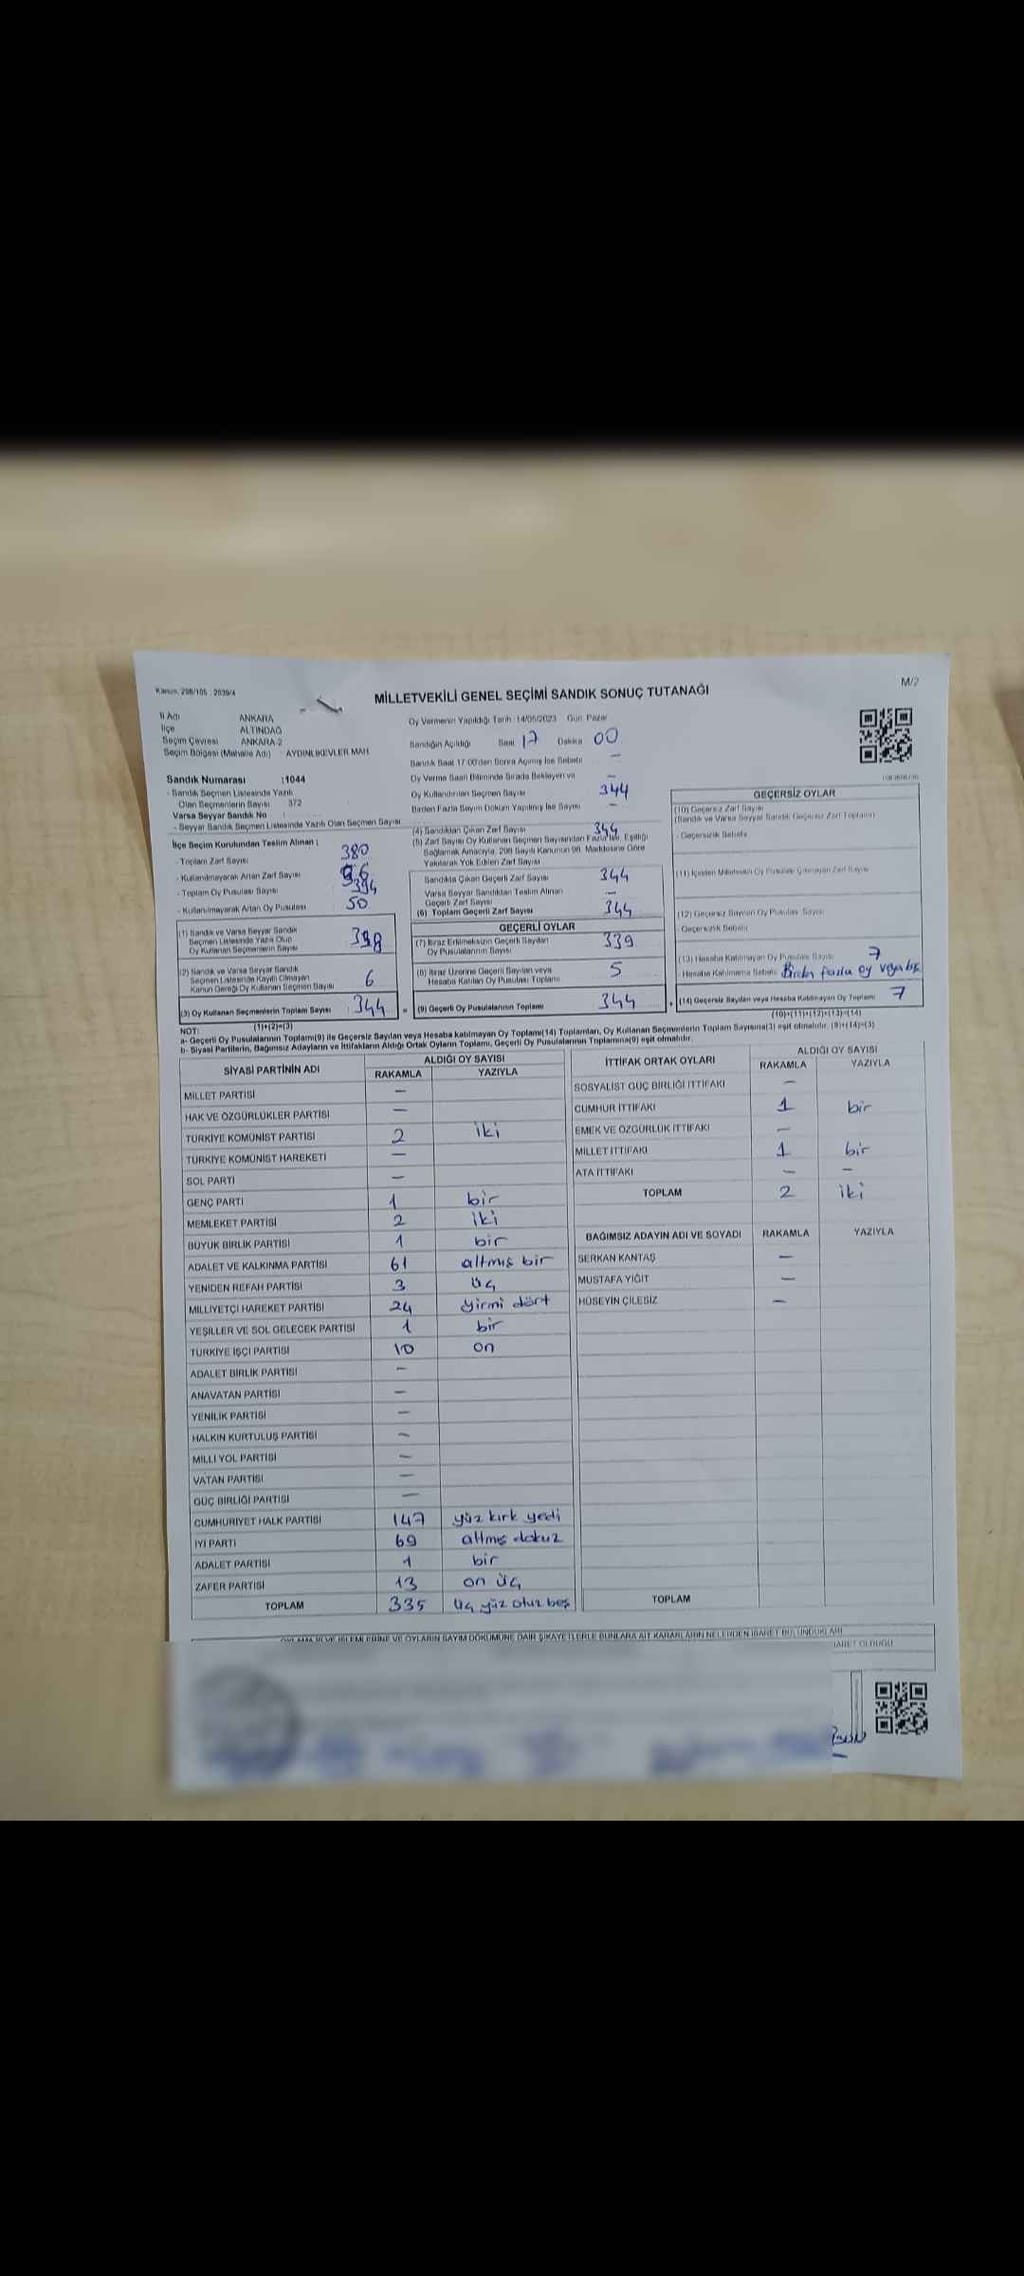 Kanun, 298/105 : 2839/4
M/2
MİLLETVEKİLİ GENEL SEÇİMİ SANDIK SONUÇ TUTANAĞI
İl Adı ANKARA
İlçe ALTINDAĞ
Seçim Çevresi ANKARA-2
Seçim Bölgesi (Mahalle Adı) AYDINLIKEVLER MAH.
Sandık Numarası :1044
- Sandık Seçmen Listesinde Yazılı
Olan Seçmenlerin Sayısı 372
Varsa Seyyar Sandık No :
- Seyyar Sandık Seçmen Listesinde Yazılı Olan Seçmen Sayısı
İlçe Seçim Kurulundan Teslim Alınan :
- Toplam Zarf Sayısı 380
- Kullanılmayarak Artan Zarf Sayısı
- Toplam Oy Pusulası Sayısı 394
- Kullanılmayarak Artan Oy Pusulası 50
(1) Sandık ve Varsa Seyyar Sandık
Seçmen Listesinde Yazılı Olup
Oy Kullanan Seçmenlerin Sayısı
(2) Sandık ve Varsa Seyyar Sandık
Seçmen Listesinde Kayıtlı Olmayan
Kanun Gereği Oy Kullanan Seçmen Sayısı 6
(3) Oy Kullanan Seçmenlerin Toplam Sayısı 344
(1)+(2)=(3)
Oy Vermenin Yapıldığı Tarih :14/05/2023 Gün: Pazar
Sandığın Açıldığı Saat 17 Dakika 00
Sandık Saat 17.00'den Sonra Açılmış İse Sebebi —
Oy Verme Saati Bitiminde Sırada Bekleyen ve —
Oy Kullandırılan Seçmen Sayısı 344
Birden Fazla Sayım Döküm Yapılmış İse Sayısı —
(4) Sandıktan Çıkan Zarf Sayısı 344
(5) Zarf Sayısı Oy Kullanan Seçmen Sayısından Fazla İse, Eşitliği
Sağlamak Amacıyla, 298 Sayılı Kanunun 98. Maddesine Göre
Yakılarak Yok Edilen Zarf Sayısı
Sandıkta Çıkan Geçerli Zarf Sayısı 344
Varsa Seyyar Sandıktan Teslim Alınan
Geçerli Zarf Sayısı —
(6) Toplam Geçerli Zarf Sayısı 344
GEÇERLİ OYLAR
(7) İtiraz Edilmeksizin Geçerli Sayılan
Oy Pusulalarının Sayısı 339
(8) İtiraz Üzerine Geçerli Sayılan veya
Hesaba Katılan Oy Pusulası Toplamı 5
(9) Geçerli Oy Pusulalarının Toplamı 344
GEÇERSİZ OYLAR
(10) Geçersiz Zarf Sayısı
(Sandık ve Varsa Seyyar Sandık Geçersiz Zarf Toplamı)
- Geçersizlik Sebebi
(11) İçinden Milletvekili Oy Pusulası Çıkmayan Zarf Sayısı
(12) Geçersiz Sayılan Oy Pusulası Sayısı
- Geçersizlik Sebebi
(13) Hesaba Katılmayan Oy Pusulası Sayısı 7
- Hesaba Katılmama Sebebi Birden fazla oy
(14) Geçersiz Sayılan veya Hesaba Katılmayan Oy Toplamı 7
(10)+(11)+(12)+(13)=(14)
NOT:
a- Geçerli Oy Pusulalarının Toplamı(9) ile Geçersiz Sayılan veya Hesaba katılmayan Oy Toplamı(14) Toplamları, Oy Kullanan Seçmenlerin Toplam Sayısına(3) eşit olmalıdır. (9)+(14)=(3)
b- Siyasi Partilerin, Bağımsız Adayların ve İttifakların Aldığı Ortak Oyların Toplamı, Geçerli Oy Pusulalarının Toplamına(9) eşit olmalıdır.
SİYASİ PARTİNİN ADI ALDIĞI OY SAYISI
RAKAMLA YAZIYLA
MİLLET PARTİSİ —
HAK VE ÖZGÜRLÜKLER PARTİSİ —
TÜRKİYE KOMÜNİST PARTİSİ 2 iki
TÜRKİYE KOMÜNİST HAREKETİ —
SOL PARTİ —
GENÇ PARTİ 1 bir
MEMLEKET PARTİSİ 2 iki
BÜYÜK BİRLİK PARTİSİ 1 bir
ADALET VE KALKINMA PARTİSİ 61 altmış bir
YENİDEN REFAH PARTİSİ 3 üç
MİLLİYETÇİ HAREKET PARTİSİ 24 yirmi dört
YEŞİLLER VE SOL GELECEK PARTİSİ 1 bir
TÜRKİYE İŞÇİ PARTİSİ 10 on
ADALET BİRLİK PARTİSİ —
ANAVATAN PARTİSİ —
YENİLİK PARTİSİ —
HALKIN KURTULUŞ PARTİSİ —
MİLLİ YOL PARTİSİ —
VATAN PARTİSİ —
GÜÇ BİRLİĞİ PARTİSİ —
CUMHURİYET HALK PARTİSİ 147 yüz kırk yedi
İYİ PARTİ 69 altmış dokuz
ADALET PARTİSİ 1 bir
ZAFER PARTİSİ 13 on üç
TOPLAM 335 üç yüz otuz beş
İTTİFAK ORTAK OYLARI ALDIĞI OY SAYISI
RAKAMLA YAZIYLA
SOSYALİST GÜÇ BİRLİĞİ İTTİFAKI —
CUMHUR İTTİFAKI 1 bir
EMEK VE ÖZGÜRLÜK İTTİFAKI —
MİLLET İTTİFAKI 1 bir
ATA İTTİFAKI — —
TOPLAM 2 iki
BAĞIMSIZ ADAYIN ADI VE SOYADI RAKAMLA YAZIYLA
SERKAN KANTAŞ —
MUSTAFA YİĞİT —
HÜSEYİN ÇİLESİZ —
TOPLAM